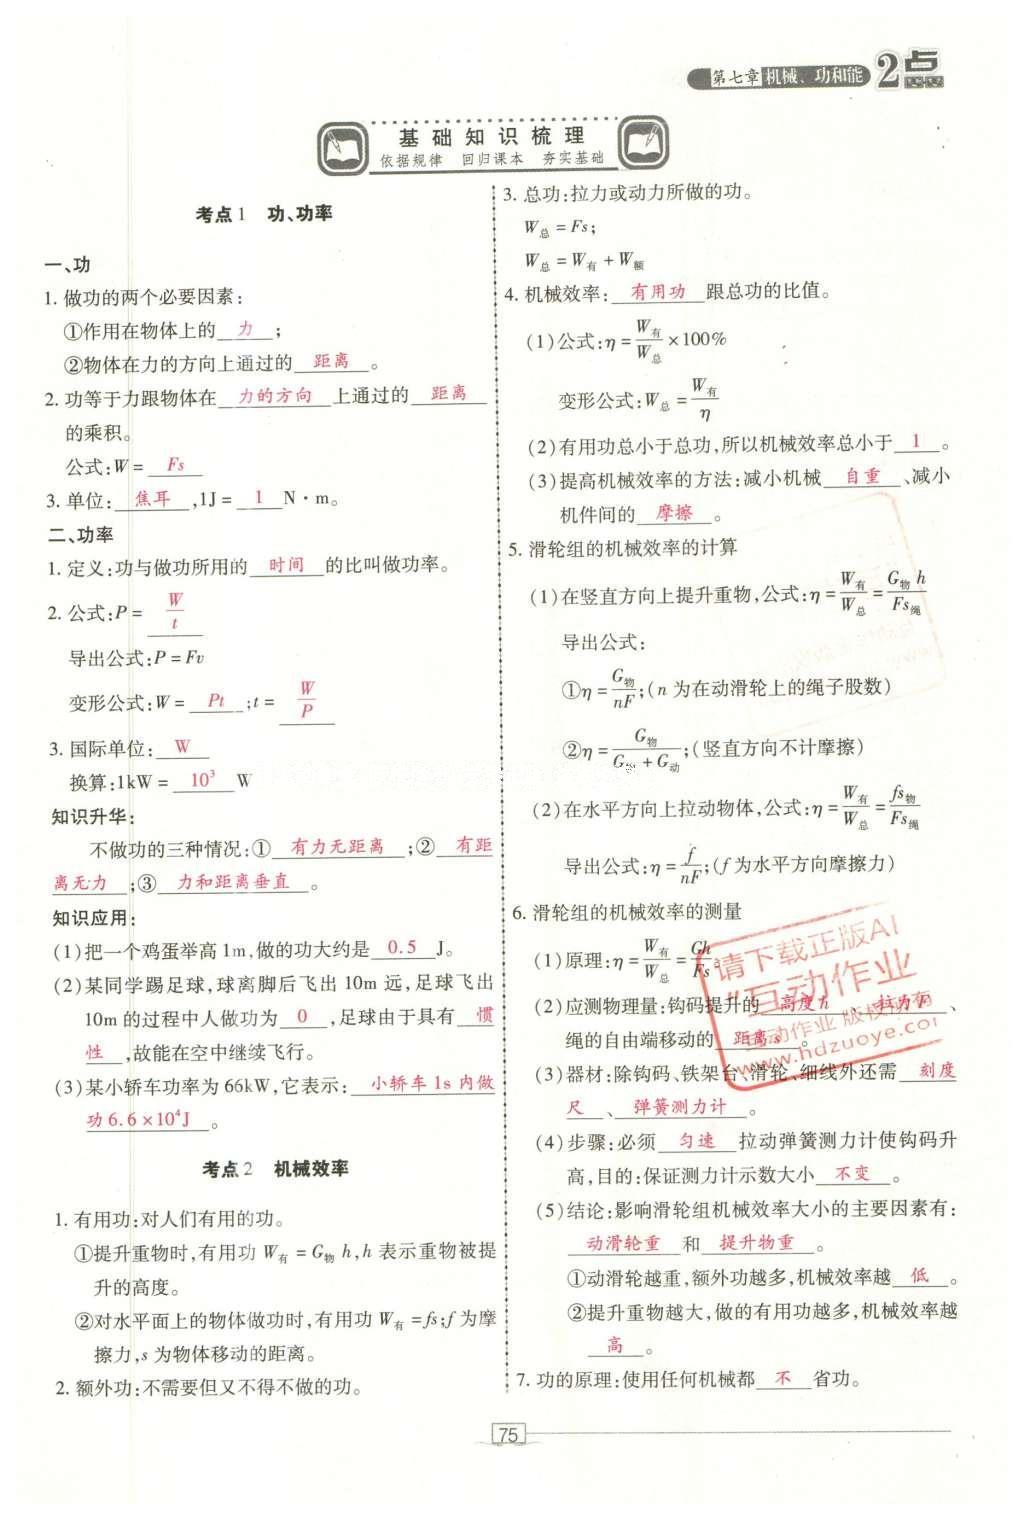 第七章 机械、功和能 2点
基础知识梳理
依据规律 回归课本 夯实基础
考点1 功、功率
一、功
1. 做功的两个必要因素:
①作用在物体上的 力 ;
②物体在力的方向上通过的 距离 。
2. 功等于力跟物体在 力的方向 上通过的 距离
的乘积。
公式:W = Fs
3. 单位: 焦耳 ,1J = 1 N·m。
二、功率
1. 定义:功与做功所用的 时间 的比叫做功率。
2. 公式:P = W/t
导出公式:P = Fv
变形公式:W = Pt ;t = W/P
3. 国际单位: W
换算:1kW = 10³ W
知识升华:
不做功的三种情况:① 有力无距离 ;② 有距
离无力 ;③ 力和距离垂直 。
知识应用:
(1)把一个鸡蛋举高1m,做的功大约是 0.5 J。
(2)某同学踢足球,球离脚后飞出10m远,足球飞出
10m的过程中人做功为 0 ,足球由于具有 惯
性 ,故能在空中继续飞行。
(3)某小轿车功率为66kW,它表示: 小轿车1s内做
功6.6×10⁴J 。
考点2 机械效率
1. 有用功:对人们有用的功。
①提升重物时,有用功W有 = G物 h,h表示重物被提
升的高度。
②对水平面上的物体做功时,有用功W有 = fs;f为摩
擦力,s为物体移动的距离。
2. 额外功:不需要但又不得不做的功。
3. 总功:拉力或动力所做的功。
W总 = Fs;
W总 = W有 + W额
4. 机械效率: 有用功 跟总功的比值。
(1)公式:η = W有/W总 × 100%
变形公式:W总 = W有/η
(2)有用功总小于总功,所以机械效率总小于 1 。
(3)提高机械效率的方法:减小机械 自重 、减小
机件间的 摩擦 。
5. 滑轮组的机械效率的计算
(1)在竖直方向上提升重物,公式:η = W有/W总 = G物 h/Fs绳
导出公式:
①η = G物/nF;(n为在动滑轮上的绳子股数)
②η = G物/G物 + G动;(竖直方向不计摩擦)
(2)在水平方向上拉动物体,公式:η = W有/W总 = fs物/Fs绳
导出公式:η = f/nF;(f为水平方向摩擦力)
6. 滑轮组的机械效率的测量
(1)原理:η = W有/W总 = Gh/Fs。
(2)应测物理量:钩码提升的 高度h 、 拉力F 、
绳的自由端移动的 距离s 。
(3)器材:除钩码、铁架台、滑轮、细线外还需 刻度
尺 、 弹簧测力计 。
(4)步骤:必须 匀速 拉动弹簧测力计使钩码升
高,目的:保证测力计示数大小 不变 。
(5)结论:影响滑轮组机械效率大小的主要因素有:
动滑轮重 和 提升物重 。
①动滑轮越重,额外功越多,机械效率越 低 。
②提升重物越大,做的有用功越多,机械效率越
高 。
7. 功的原理:使用任何机械都 不 省功。
请下载正版AI
"互动作业
互动作业 版权所有
www.hdzuoye.com
75